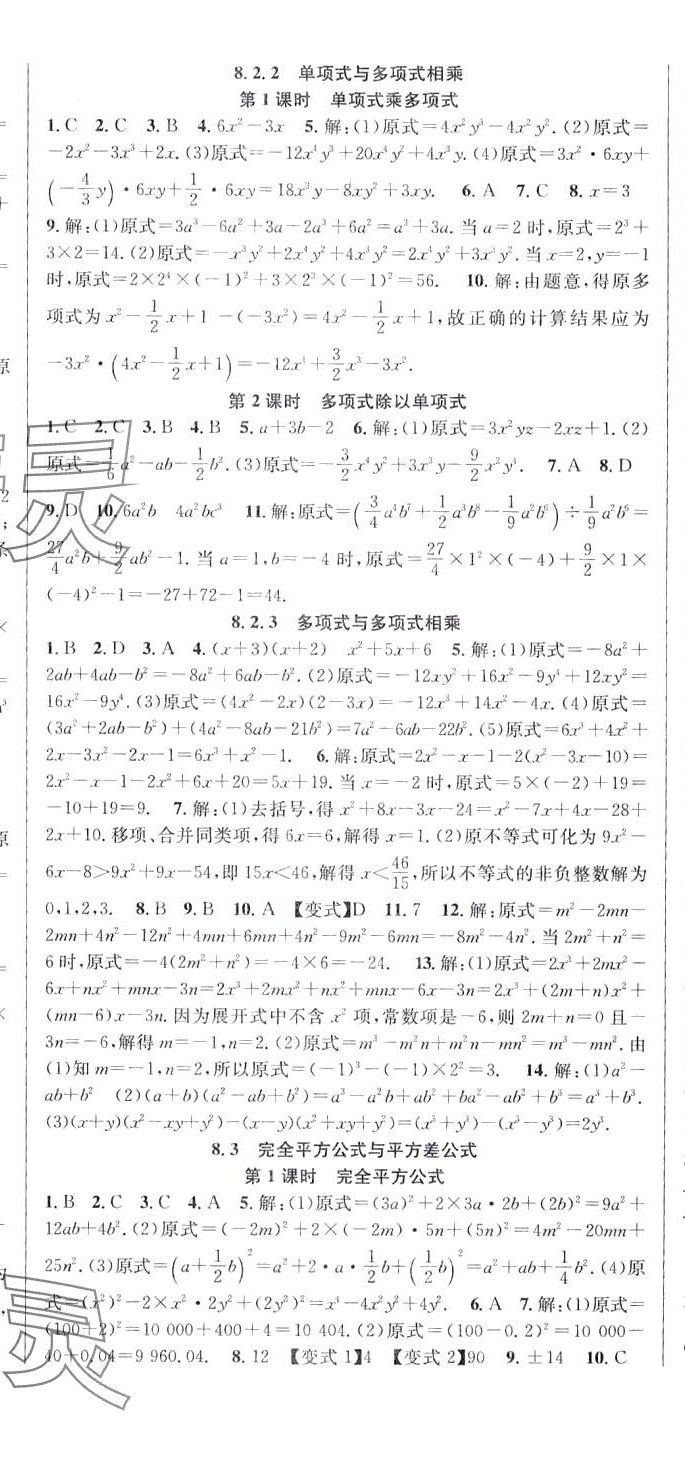 8.2.2 单项式与多项式相乘
第1课时 单项式乘多项式
1.C 2.C 3.B 4.6x²−3x 5.解:(1)原式=4x²y³−4x²y².(2)原式=
−2x²−3x³+2x.(3)原式=−12x⁴y³+20x⁴y²+4x³y.(4)原式=3x²·6xy+
(−4/3 y)·6xy+1/2·6xy=18x³y−8xy²+3xy. 6.A 7.C 8.x=3
9.解:(1)原式=3a³−6a²+3a−2a³+6a²=a³+3a.当a=2时,原式=2³+
3×2=14.(2)原式=−x³y²+2x⁴y²+4x³y²=2x⁴y²+3x³y².当x=2,y=−1
时,原式=2×2⁴×(−1)²+3×2³×(−1)²=56. 10.解:由题意,得原多
项式为x²−1/2 x+1−(−3x²)=4x²−1/2 x+1,故正确的计算结果应为
−3x²·(4x²−1/2 x+1)=−12x⁴+3/2 x³−3x².
第2课时 多项式除以单项式
1.C 2.C 3.B 4.B 5.a+3b−2 6.解:(1)原式=3x²yz−2xz+1.(2)
原式=1/6 a²−ab−1/2 b².(3)原式=−3/2 x⁴y²+3x³y−9/2 x²y². 7.A 8.D
9.D 10.6a²b 4a²bc³ 11.解:原式=(3/4 a⁴b⁷+1/2 a³b⁸−1/9 a²b⁶)÷1/9 a²b⁶=
27/4 a²b+9/2 ab²−1.当a=1,b=−4时,原式=27/4×1²×(−4)+9/2×1×
(−4)²−1=−27+72−1=44.
8.2.3 多项式与多项式相乘
1.B 2.D 3.A 4.(x+3)(x+2) x²+5x+6 5.解:(1)原式=−8a²+
2ab+4ab−b²=−8a²+6ab−b².(2)原式=−12xy²+16x²−9y⁴+12xy²=
16x²−9y⁴.(3)原式=(4x²−2x)(2−3x)=−12x³+14x²−4x.(4)原式=
(3a²+2ab−b²)+(4a²−8ab−21b²)=7a²−6ab−22b².(5)原式=6x³+4x²+
2x−3x²−2x−1=6x³+x²−1. 6.解:原式=2x²−x−1−2(x²−3x−10)=
2x²−x−1−2x²+6x+20=5x+19.当x=−2时,原式=5×(−2)+19=
−10+19=9. 7.解:(1)去括号,得x²+8x−3x−24=x²−7x+4x−28+
2x+10.移项、合并同类项,得6x=6,解得x=1.(2)原不等式可化为9x²−
6x−8>9x²+9x−54,即15x<46,解得x<46/15,所以不等式的非负整数解为
0,1,2,3. 8.B 9.B 10.A 【变式】D 11.7 12.解:原式=m²−2mn−
2mn+4n²−12n²+4mn+6mn+4n²−9m²−6mn=−8m²−4n².当2m²+n²=
6时,原式=−4(2m²+n²)=−4×6=−24. 13.解:(1)原式=2x³+2mx²−
6x+nx²+mnx−3n=2x³+2mx²+nx²+mnx−6x−3n=2x³+(2m+n)x²+
(mn−6)x−3n.因为展开式中不含x²项,常数项是−6,则2m+n=0且−
3n=−6,解得m=−1,n=2.(2)原式=m³−m²n+m²n−mn²=m³−mn².由
(1)知m=−1,n=2,所以原式=(−1)³−(−1)×2²=3. 14.解:(1)a²−
ab+b² (2)(a+b)(a²−ab+b²)=a³−a²b+ab²+ba²−ab²+b³=a³+b³.
(3)(x+y)(x²−xy+y²)−(x−y)(x²+xy+y²)=(x³+y³)−(x³−y³)=2y³.
8.3 完全平方公式与平方差公式
第1课时 完全平方公式
1.B 2.C 3.C 4.A 5.解:(1)原式=(3a)²+2×3a·2b+(2b)²=9a²+
12ab+4b².(2)原式=(−2m)²+2×(−2m)·5n+(5n)²=4m²−20mn+
25n².(3)原式=(a+1/2 b)²=a²+2·a·1/2 b+(1/2 b)²=a²+ab+1/4 b².(4)原
式=(x²)²−2×x²·2y²+(2y²)²=x⁴−4x²y²+4y⁴. 6.A 7.解:(1)原式=
(100+2)²=10 000+400+4=10 404.(2)原式=(100−0.2)²=10 000−
40+0.04=9 960.04. 8.12 【变式1】4 【变式2】90 9.±14 10.C